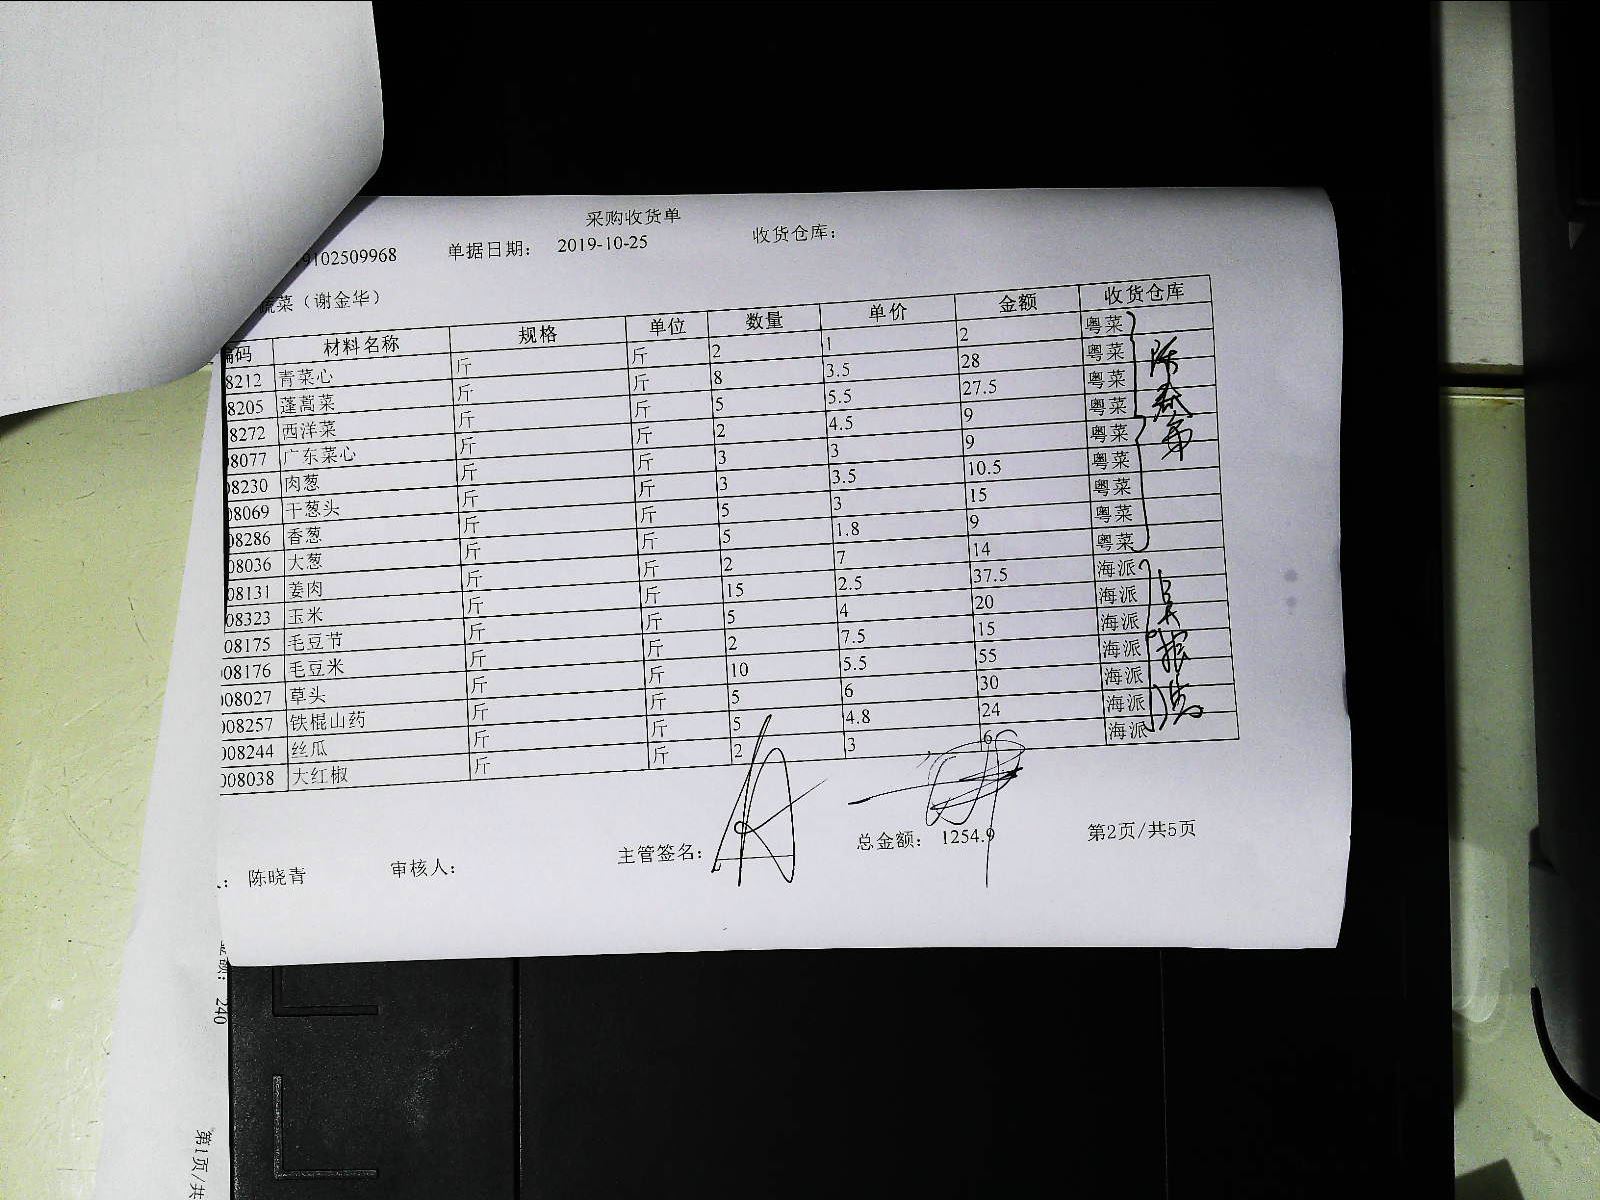 采购收货单
9102509968 单据日期： 2019-10-25 收货仓库：
蔬菜（谢金华）
编码 材料名称 规格 单位 数量 单价 金额 收货仓库
8212 青菜心 斤 斤 2 1 2 粤菜
8205 蓬蒿菜 斤 斤 8 3.5 28 粤菜
8272 西洋菜 斤 斤 5 5.5 27.5 粤菜
08077 广东菜心 斤 斤 2 4.5 9 粤菜
08230 肉葱 斤 斤 3 3 9 粤菜
08069 干葱头 斤 斤 3 3.5 10.5 粤菜
08286 香葱 斤 斤 5 3 15 粤菜
08036 大葱 斤 斤 5 1.8 9 粤菜
08131 姜肉 斤 斤 2 7 14 粤菜
08323 玉米 斤 斤 15 2.5 37.5 海派
008175 毛豆节 斤 斤 5 4 20 海派
008176 毛豆米 斤 斤 2 7.5 15 海派
008027 草头 斤 斤 10 5.5 55 海派
008257 铁棍山药 斤 斤 5 6 30 海派
008244 丝瓜 斤 斤 5 4.8 24 海派
008038 大红椒 斤 斤 2 3 6 海派
陈晓青 审核人： 主管签名： 总金额： 1254.9 第2页/共5页
额： 240
第1页/共